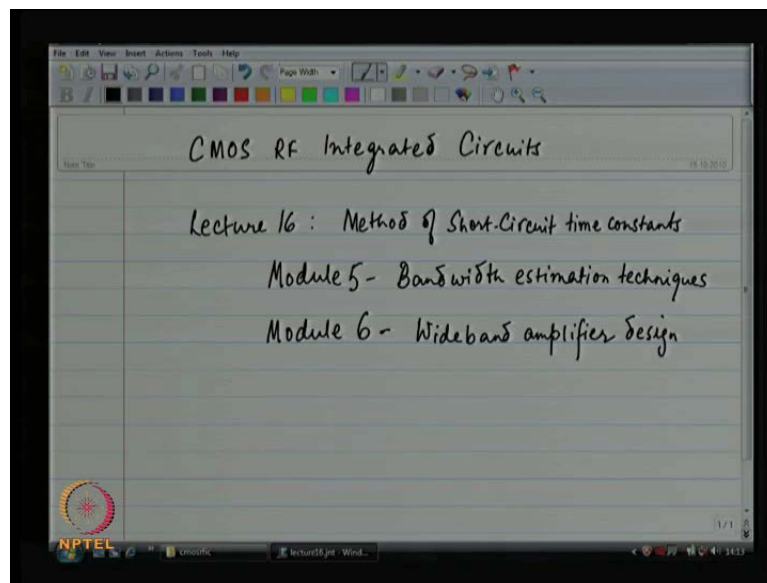 File Edit View Insert Actions Tools Help
Page Width
B I
CMOS RF Integrated Circuits
Note Title
15-10-2010
Lecture 16 : Method of Short-Circuit time constants
Module 5 - Bandwidth estimation techniques
Module 6 - Wideband amplifier design
1/1
NPTEL
cmosrfic
lecture16.jnt - Wind...
14:13